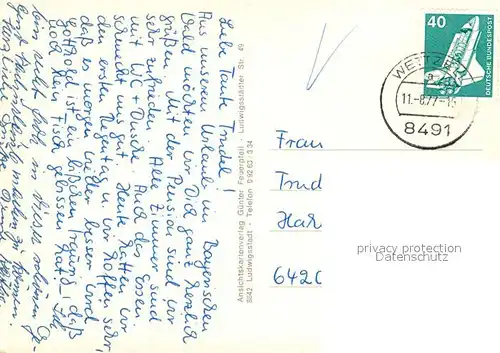 Liebe Tante Trudel!
Aus unserem Urlaub im Bayerischen
Wald möchten wir Dich ganz herzlich
grüßen. Mit der Pension sind wir
sehr zufrieden. Alle Zimmer sind
mit WC + Dusche. Auch das Essen
schmeckt uns gut. Heute hatten wir
den ersten Regentag u. wir hoffen sehr,
daß es morgen wieder besser wird.
Gotthold ist ein bißchen traurig, daß
kein Tisch gelassen hat. Ich
in dieser schönen Ge-
Ansichtskartenverlag Günter Feuerpfeil - Ludwigsstädter Str. 69
8642 Ludwigsstadt - Telefon 0 92 63 / 3 34
40
DEUTSCHE BUNDESPOST
WETTZ
a
11.-8.77-1
8491
Frau
Trud
Har
642
privacy protection
Datenschutz